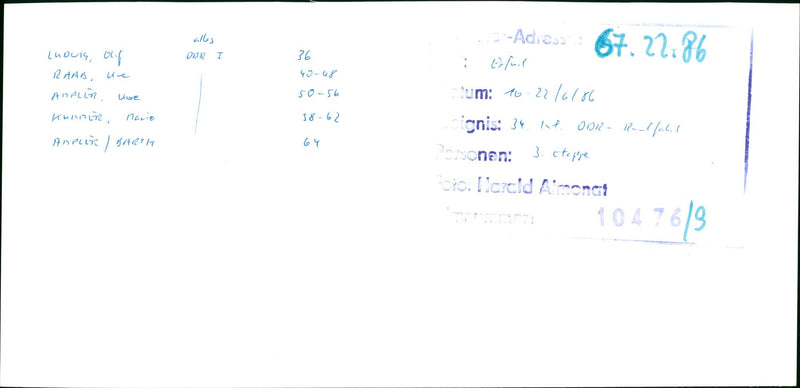 alles
LUDWIG, Olaf DDR I 36
RAAB, Uwe 40-48
AMPLER, Uwe 50-56
KUMMER, Mario 58-62
AMPLER/BARTH 64
-Adresse: 67.22.86
: Erfurt
tum: 10-22/6/86
ignis: 34. Int. DDR-Rundfahrt
Personen: 3. Etappe
Foto: Harald Almonat
10476/9